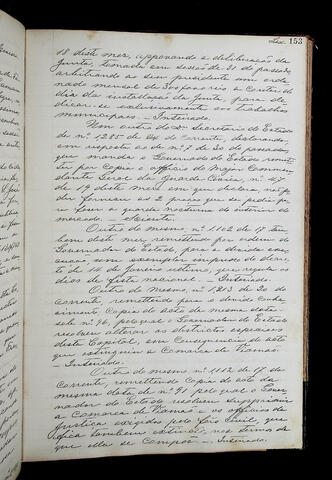 153
18 deste mez, approvando a deliberação da
Junta, tomada em sessão de 31 do passado,
arbitrando ao seu presidente um orde
nado mensal de 300 a contar do
dia da installação da Junta, para de
dicar-se exclusivamente aos trabalhos
municipaes. — Inteirado.
Um outro do Secretario do Estado
de nº 1225 de do corrente, declarando
em resposta ao de nº 7 de 30 do passado,
que manda o Governador do Estado remet
ter por copia o officio do Major Comman
dante Geral da Guarda Civica, nº
de 19 deste mez em que declara não po
der fornecer as 2 praças que se pedio pa
ra fazer a guarda nocturna do interior do
mercado. —
Outro do mesmo, nº 1162 de 17 tam
bem deste mez, remettendo por ordem do
Governador do Estado, para a devida exe
cução um exemplar impresso do decre
to de 14 de Janeiro ultimo, que regula os
dias de festa nacional. — Inteirado.
Outro do mesmo nº 1213 de 20 do
corrente, remettendo para o devido conhe
cimento copia do acto da mesma data
sob nº 96, pelo qual o Governador do Estado
resolveu alterar os districtos
desta Capital, em consequencia do acto
que extinguiu a Comarca de Viamão.
— Inteirado.
Outro do mesmo nº 1162 de 17 do
corrente, remettendo copia do acto da
mesma data de nº 91 pelo qual o Gover
nador do Estado resolveu supprimir
a Comarca de Viamão e os officios de
justiça exigidos pelo foro civil, que
fica tambem extincto, nos termos de
que ella se compõe — Inteirado.